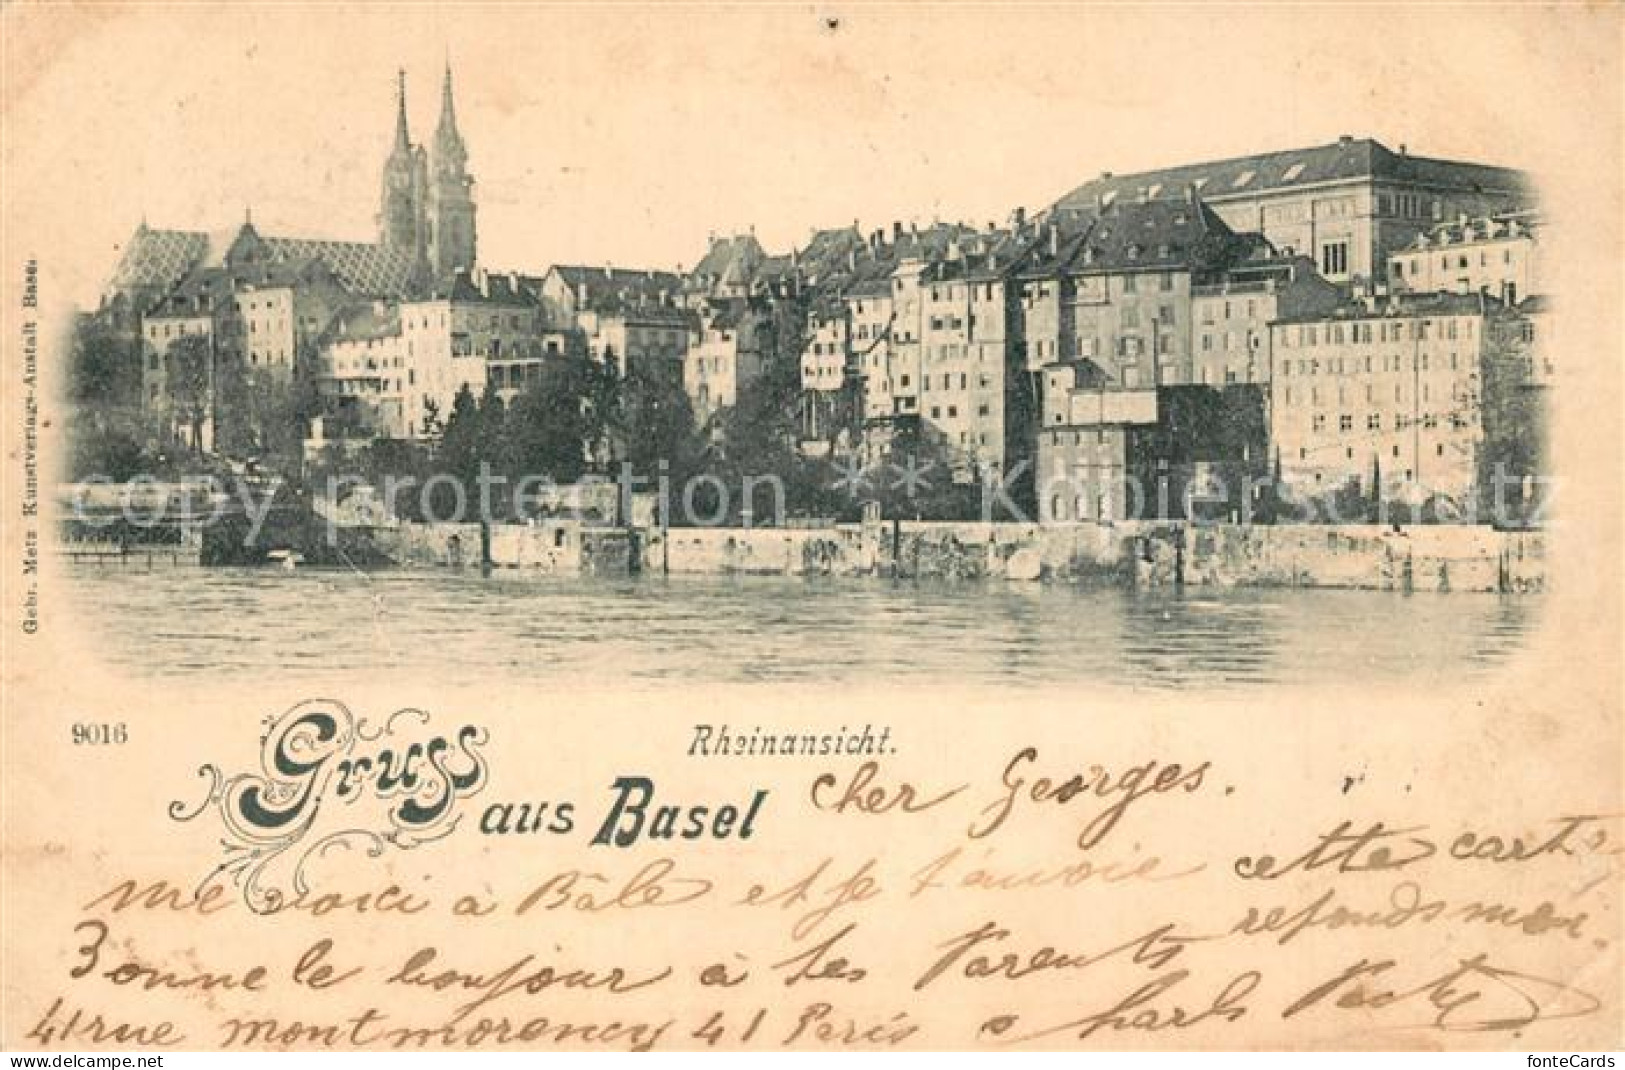 Gebr. Metz Kunstverlags-Anstalt Basel
copy protection ** Kopierschutz
9016
Rheinansicht.
Gruss
aus Basel
cher Georges.
me voici à Bâle et je t'envoie cette carte
refonds moi
Bonne le bonjour à tes Parents
41 rue montmorency 41 Paris
fonteCards